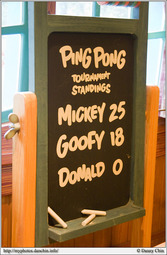 PING PONG
TOURNAMENT
STANDINGS
MICKEY 25
GOOFY 18
DONALD 0
http://myphotos.danchin.info/ © Danny Chin